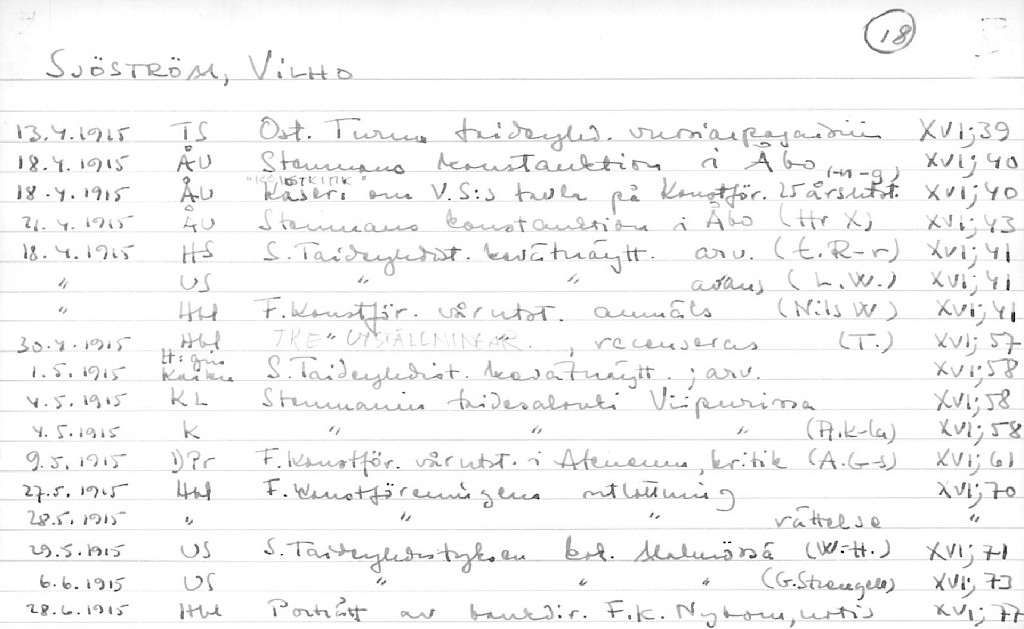 18
SJÖSTRÖM, VILHO
13.4.1915 TS Ost. Turun taideyhd. vuosiarpajaisiin XVI; 39
18.4.1915 ÅU Stenmans konstauktion i Åbo XVI; 40
"KONSTKRITIK" (-n-g)
18.4.1915 ÅU Kåseri om V.S:s tavla på Konstför. 25 årsutst. XVI; 40
21.4.1915 ÅU Stenmans konstauktion i Åbo (Hr X) XVI; 43
18.4.1915 HS S.Taideyhdist. kevätnäytt. arv. (E.R-r) XVI; 41
" US " " arvos (L.W.) XVI; 41
" Hbl F.Konstför. vårutst. anmäls (Nils W) XVI; 41
30.4.1915 Hbl TRE UTSTÄLLNINGAR , recenseras (T.) XVI; 57
1.5.1915 H:gin Kaiku S.Taideyhdist. kevätnäytt. ; arv. XVI; 58
4.5.1915 KL Stenmanin taidesalonki Viipurissa XVI; 58
4.5.1915 K " " " (A.K-la) XVI; 58
9.5.1915 DPr F.Konstför. vårutst. i Ateneum, kritik (A.G-s) XVI; 61
27.5.1915 Hbl F.Konstföreningens utlottning XVI; 70
28.5.1915 " " " rättelse "
29.5.1915 US S.Taideyhdistyksen kok. Malmössä (W.-H.) XVI; 71
6.6.1915 US " " " (G.Strengell) XVI; 73
28.6.1915 Hbl Porträtt av bankdir. F.K. Nybom, notis XVI; 77